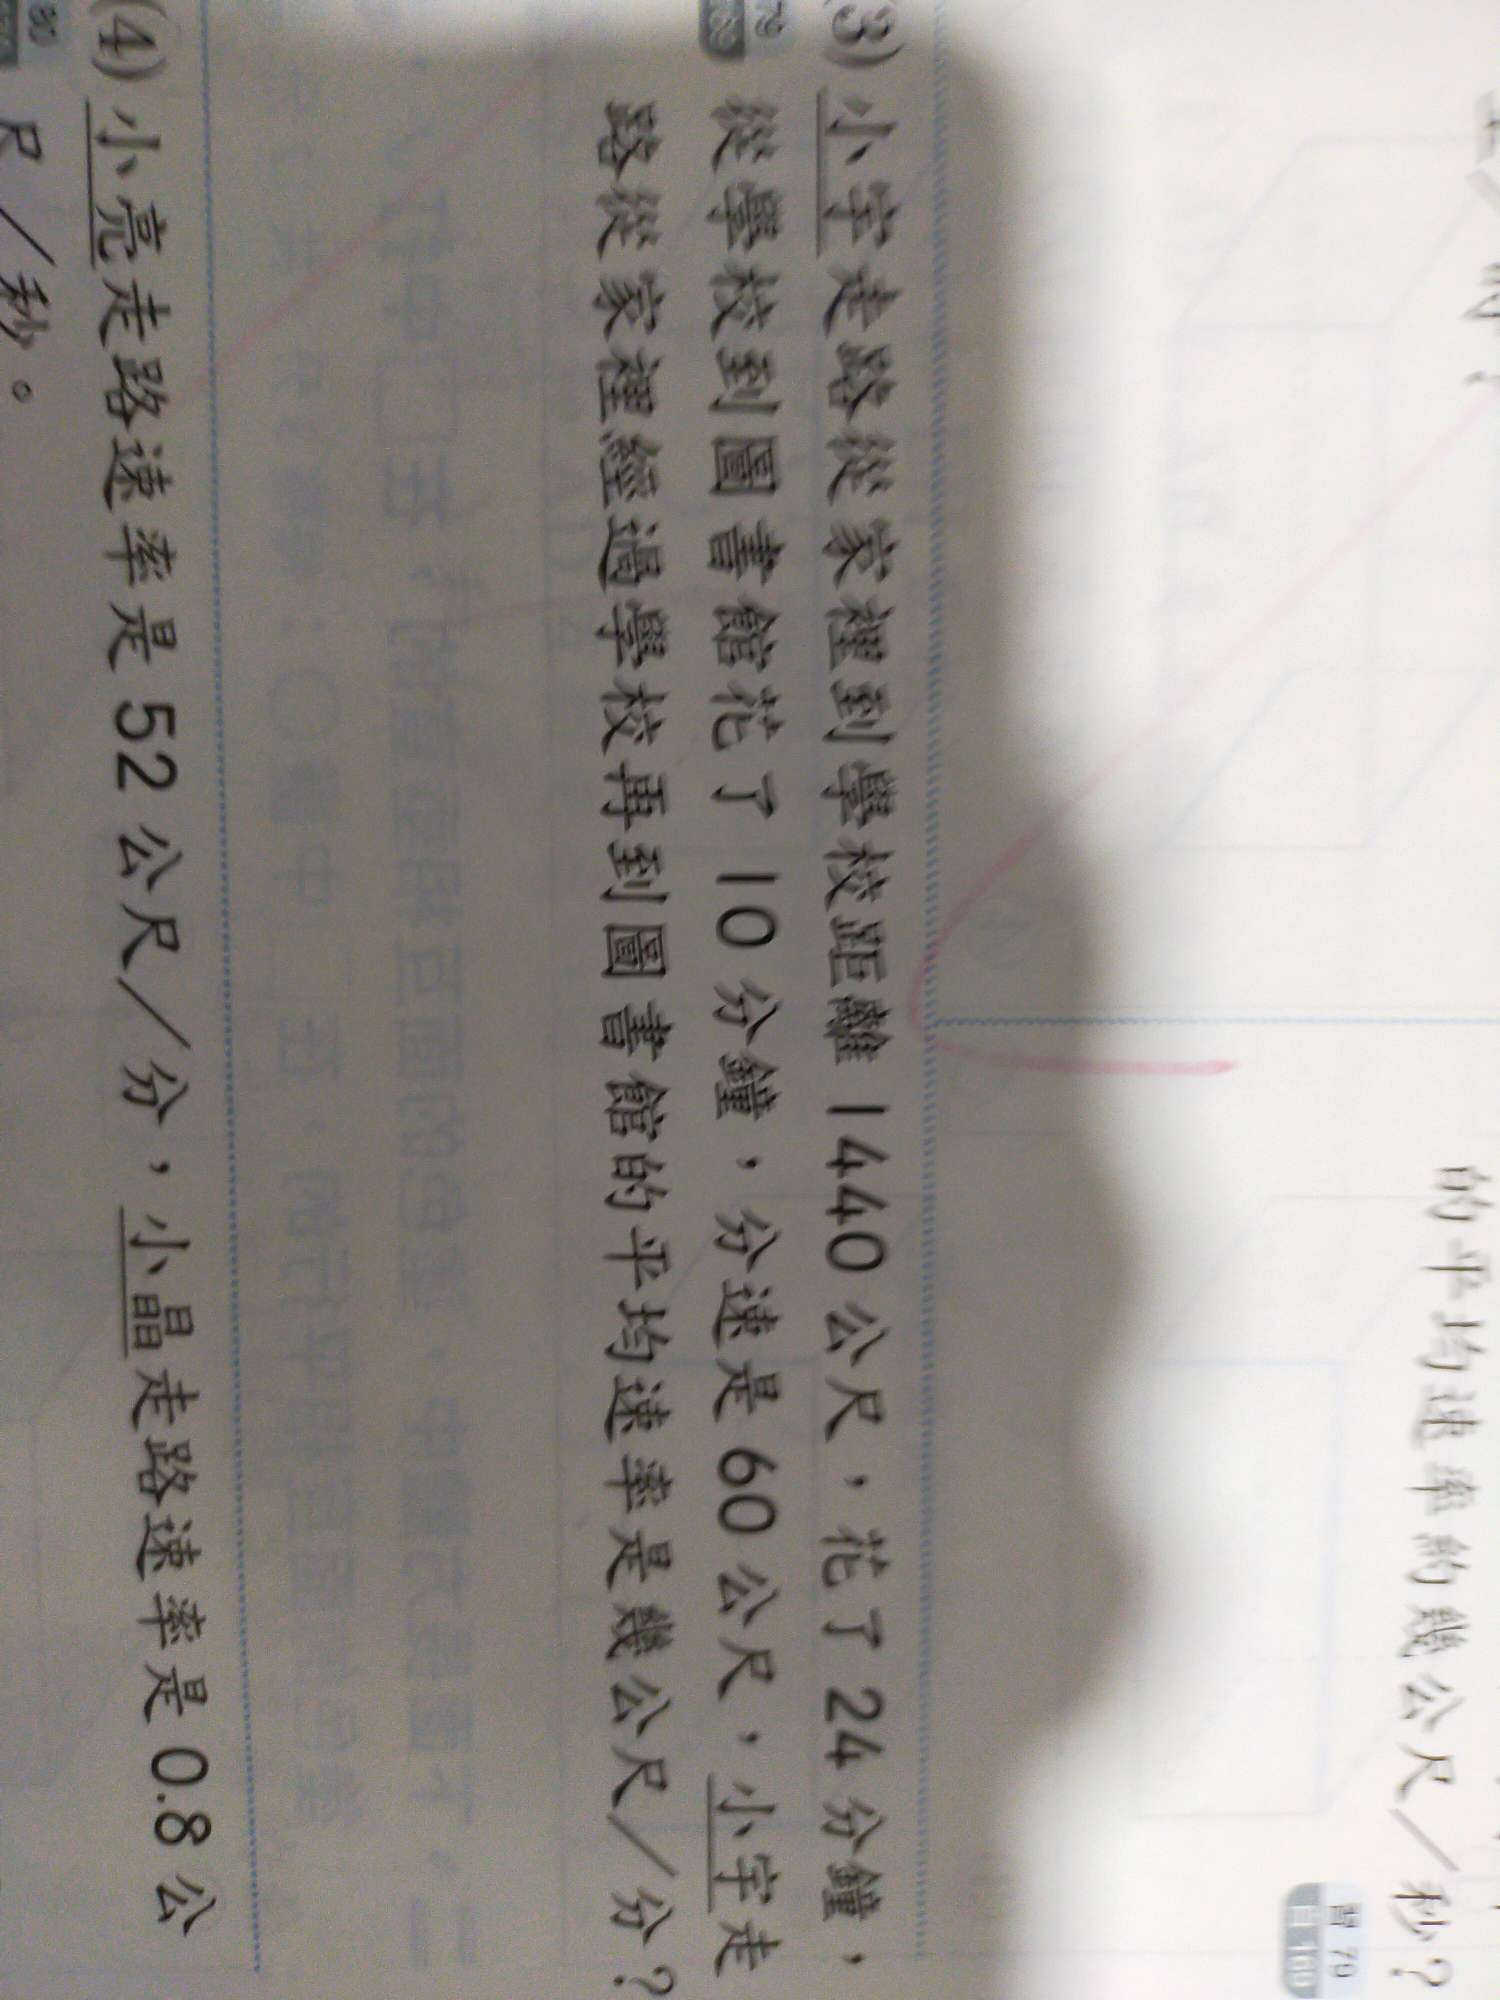 的平均速率約幾公尺／秒？
習 79
(3) 小宇走路從家裡到學校距離 1440 公尺，花了 24 分鐘，
79
從學校到圖書館花了 10 分鐘，分速是 60 公尺，小宇走
路從家裡經過學校再到圖書館的平均速率是幾公尺／分？
(4) 小亮走路速率是 52 公尺／分，小晶走路速率是 0.8 公
80
尺／秒。